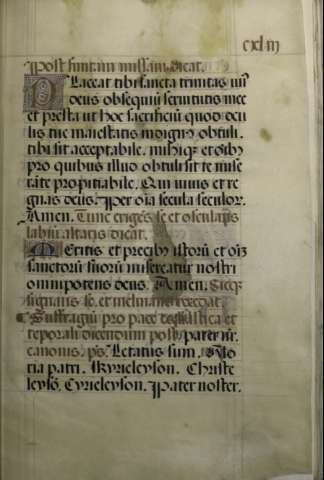 cxliij
Post finitam missam dicat.
Placeat tibi sancta trinitas un̄
deus obsequiū seruitutis mee
et presta ut hoc sacrificiū quod ocu
lis tue maiestatis indignꝰ obtuli.
tibi sit acceptabile. mihiqꝫ et oı̄bꝫ
pro quibus illud obtuli sit te mise
rāte propitiabile. Qui uiuis et re
gnas deus. Per oı̄a secula seculoꝝ.
Amen. Tunc erigēs se et osculatꝰ
labiū altaris dicat.
Meritis et precibꝫ istoꝝ et oı̄ꝫ
sanctorū suoꝝ misereatur nostri
omnipotens deus. Amen. Sicqꝫ
signans se. et inclinans recedat.
Suffragiū pro pace ecclesiastica et
tēporali dicendum post pater nr̄.
canonis. ps. Letatus sum. Glo
ria patri. Kyrieleyson. Christe
leysō. Cyrieleyson. Pater noster.